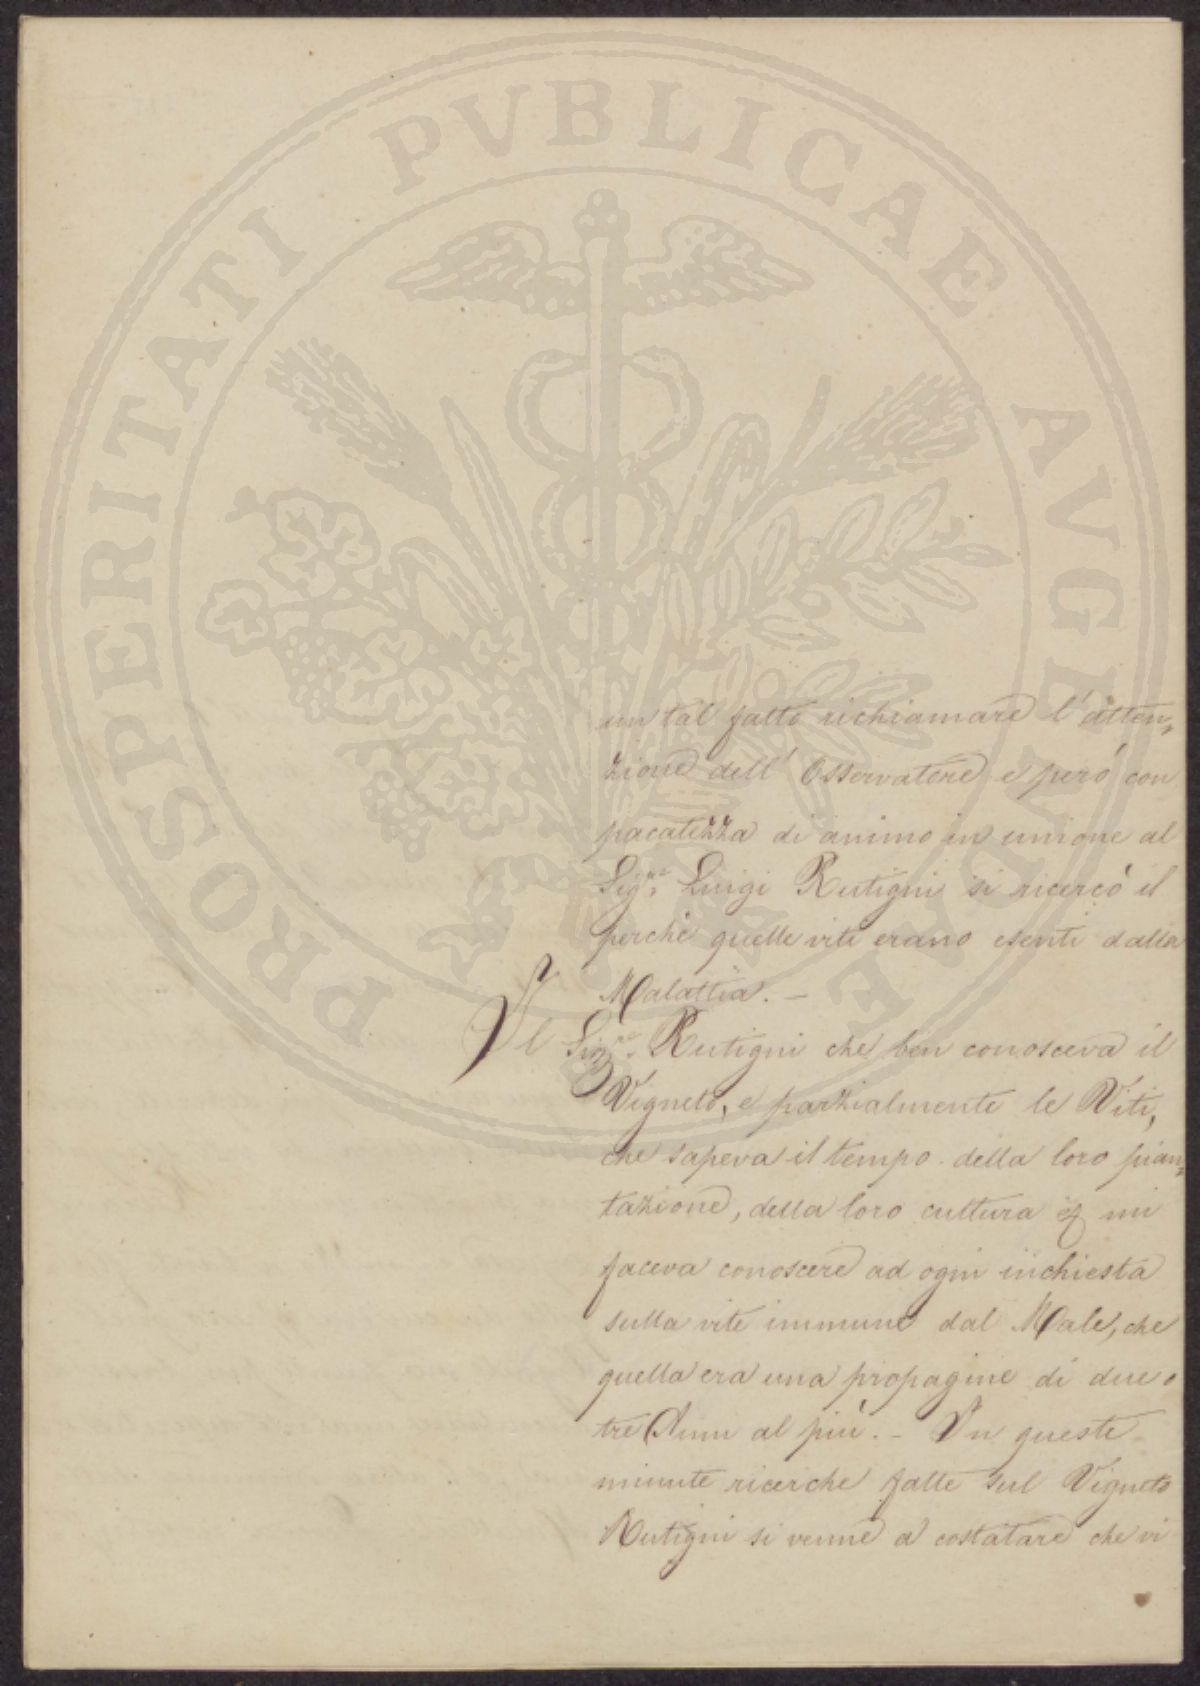 PROSPERITATI PVBLICAE AVGENDAE
un tal fatto richiamare l'atten„
zione dell'Osservatore e però con
pacatezza di animo in unione al
Sig.re Luigi Rutigni si ricercò il
perchè quelle viti erano esenti dalla
Malattia. –
Il Sig.re Rutigni che ben conosceva il
Vigneto, e parzialmente le Viti,
che sapeva il tempo della loro pian„
tazione, della loro cultura & mi
faceva conoscere ad ogni inchiesta
sulla vite immune dal Male, che
quella era una propagine di due o
tre Anni al più. – In queste
minute ricerche fatte sul Vigneto
Rutigni si venne a costatare che vi